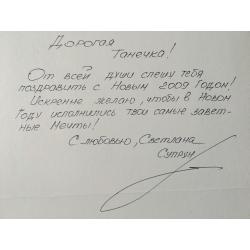 Дорогая
Танечка!
От всей души спешу тебя
поздравить с Новым 2009 Годом!
Искренне желаю, чтобы в Новом
Году исполнились твои самые завет-
ные Мечты!
С любовью, Светлана
Супрун